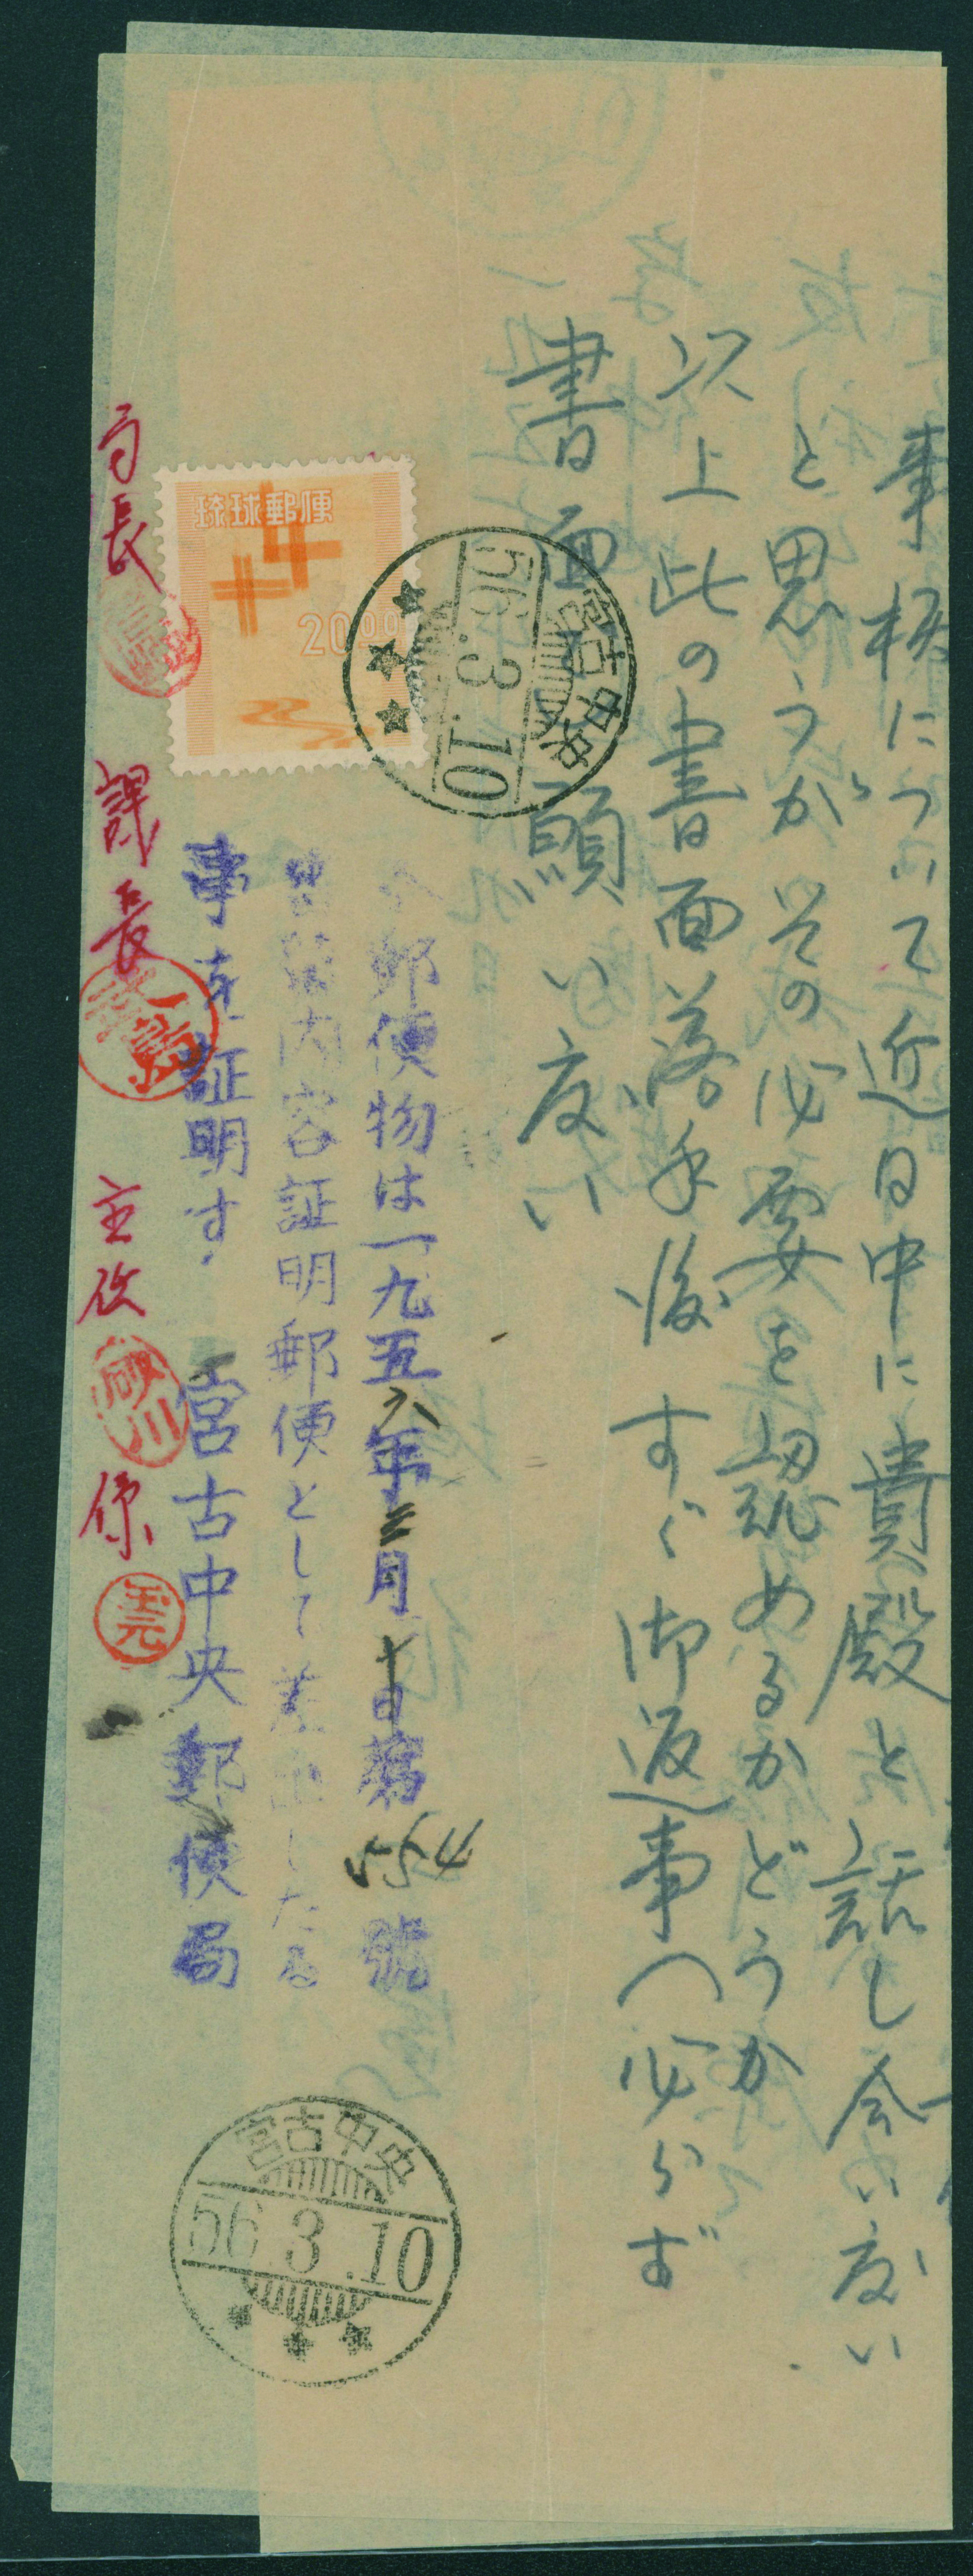 事柄について近日中に貴殿と話し合い度い
と思うが、その必要を認めるかどうか
以上此の書面落手後すぐ御返事へ必らず
書面で願い度い
琉球郵便
20.00
宮古中央
56.3.10
郵便物は一九五六年三月十日第554號
書留内容証明郵便として差出したる
事を証明す.
宮古中央郵便局
局長
課長
主改
砂川
係
宮古中央
56.3.10